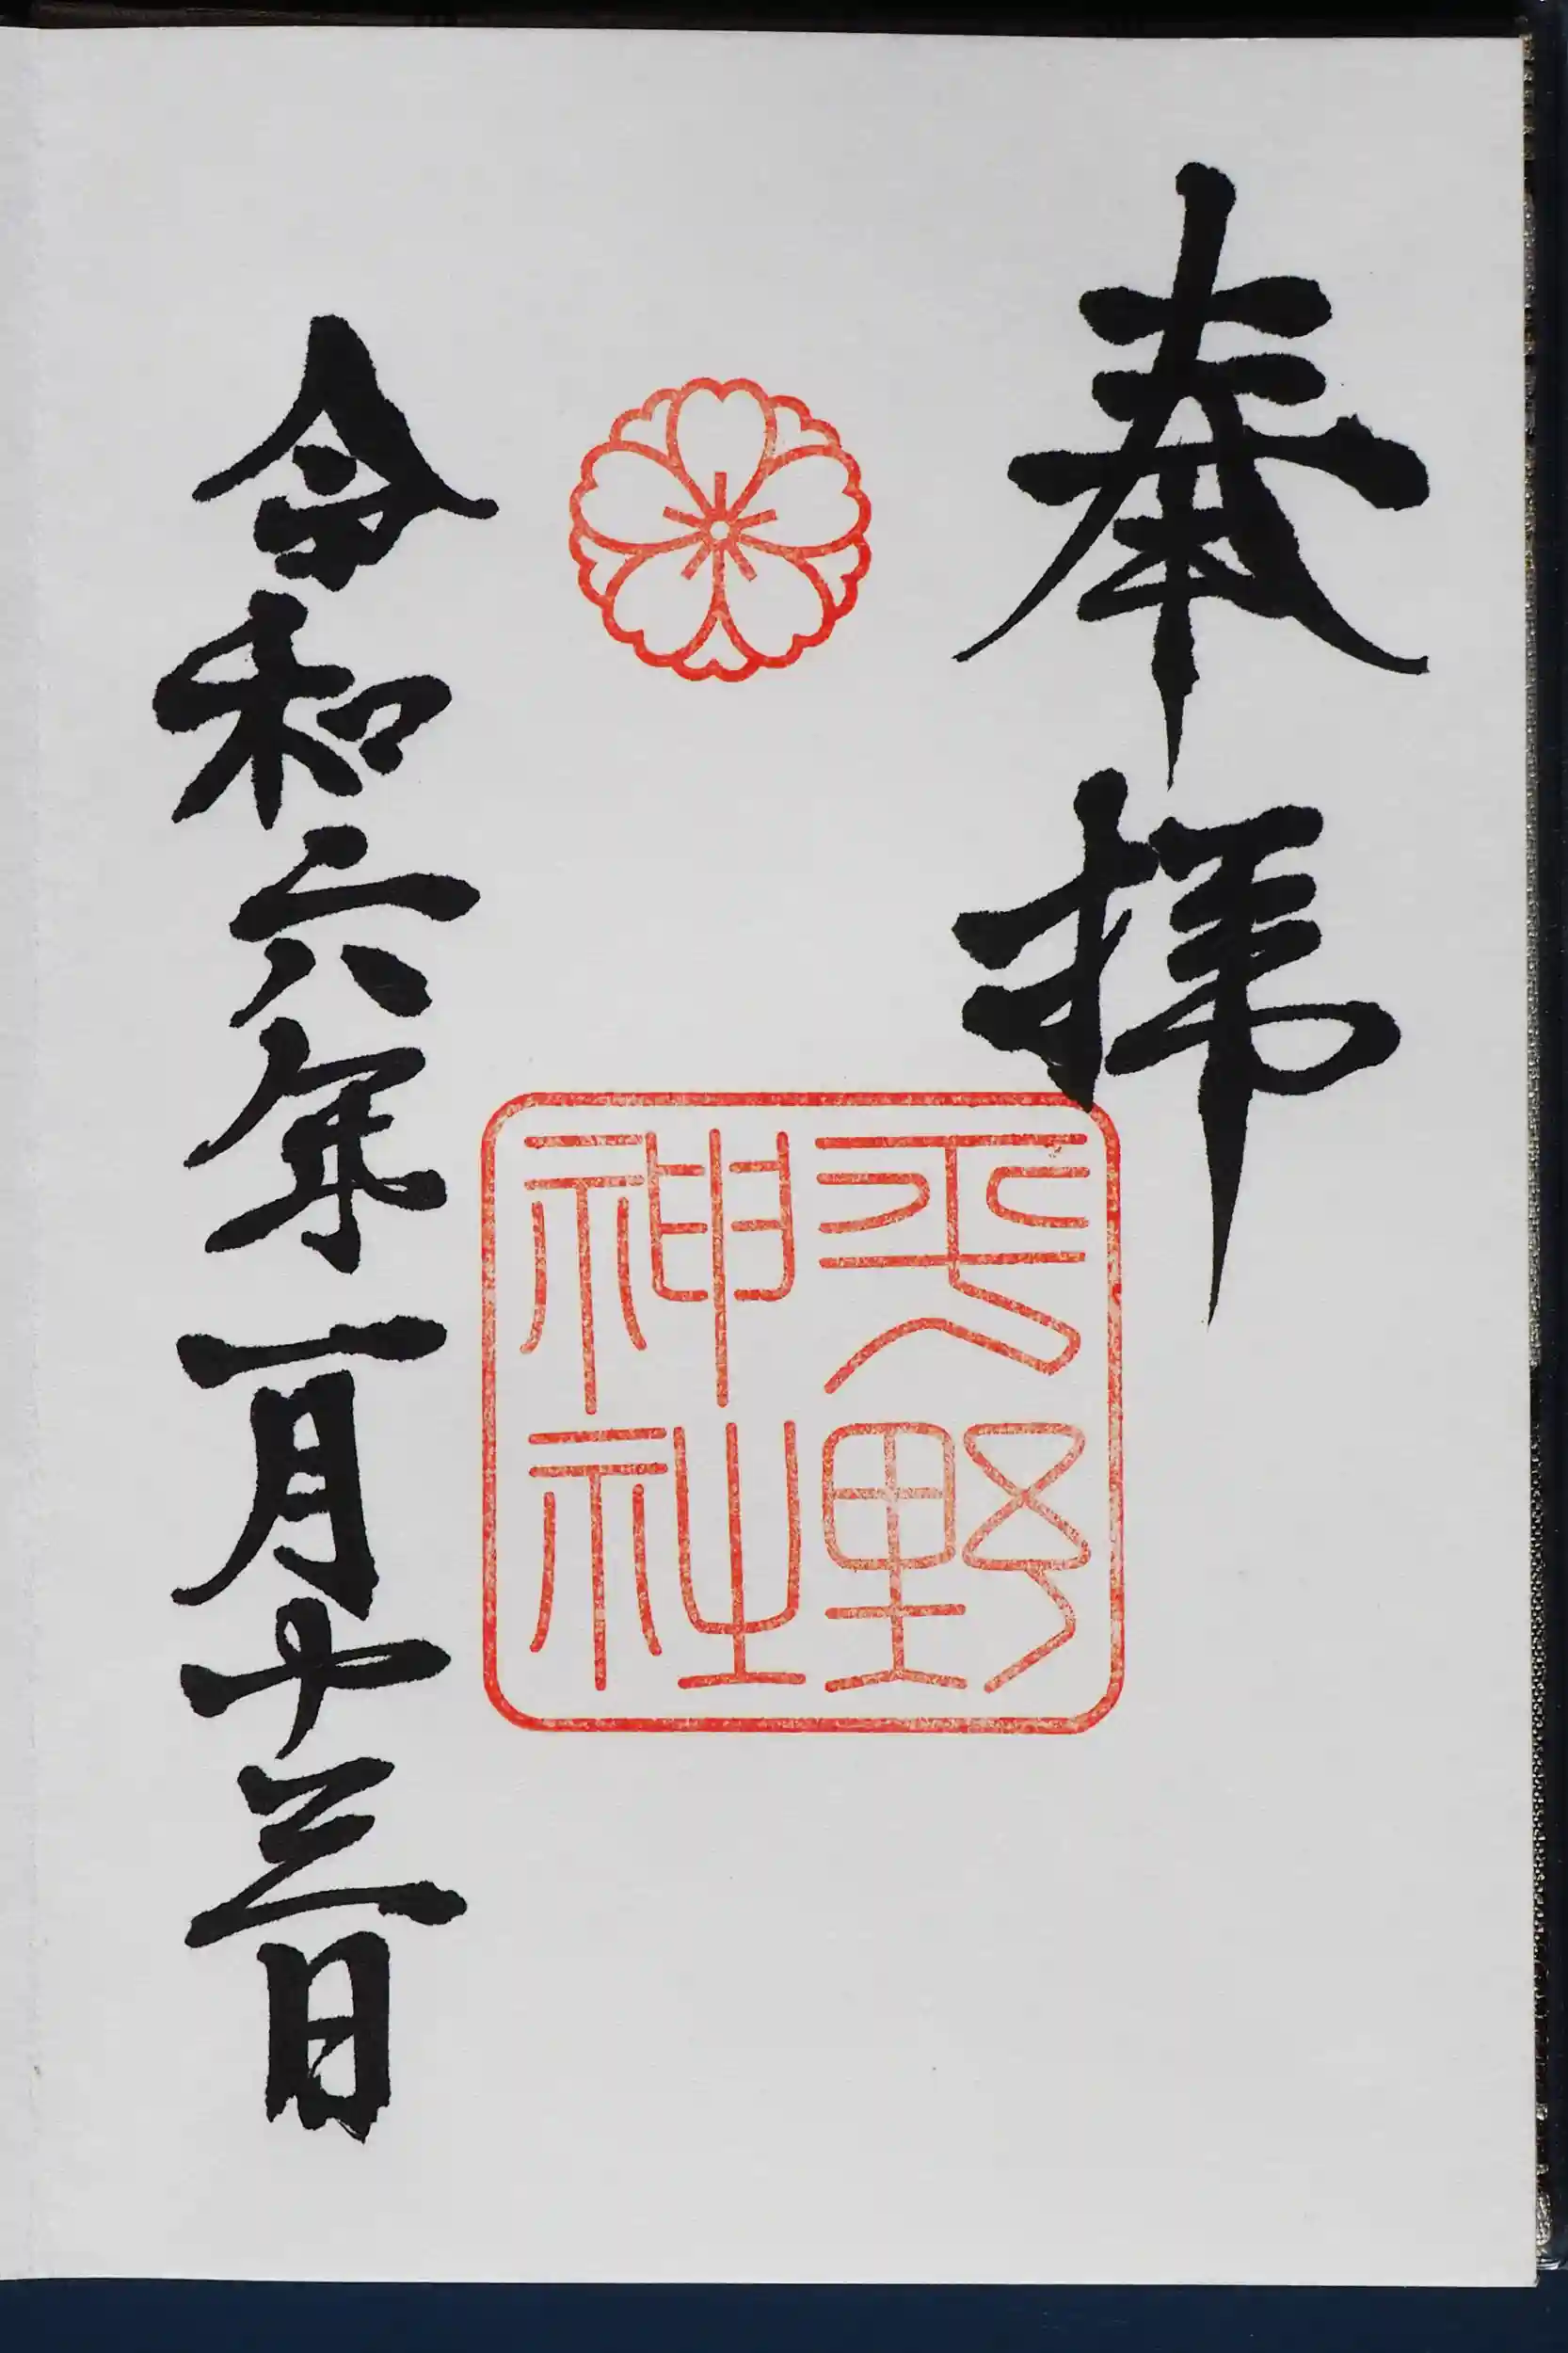 奉拝
平野
神社
令和六年一月十三日